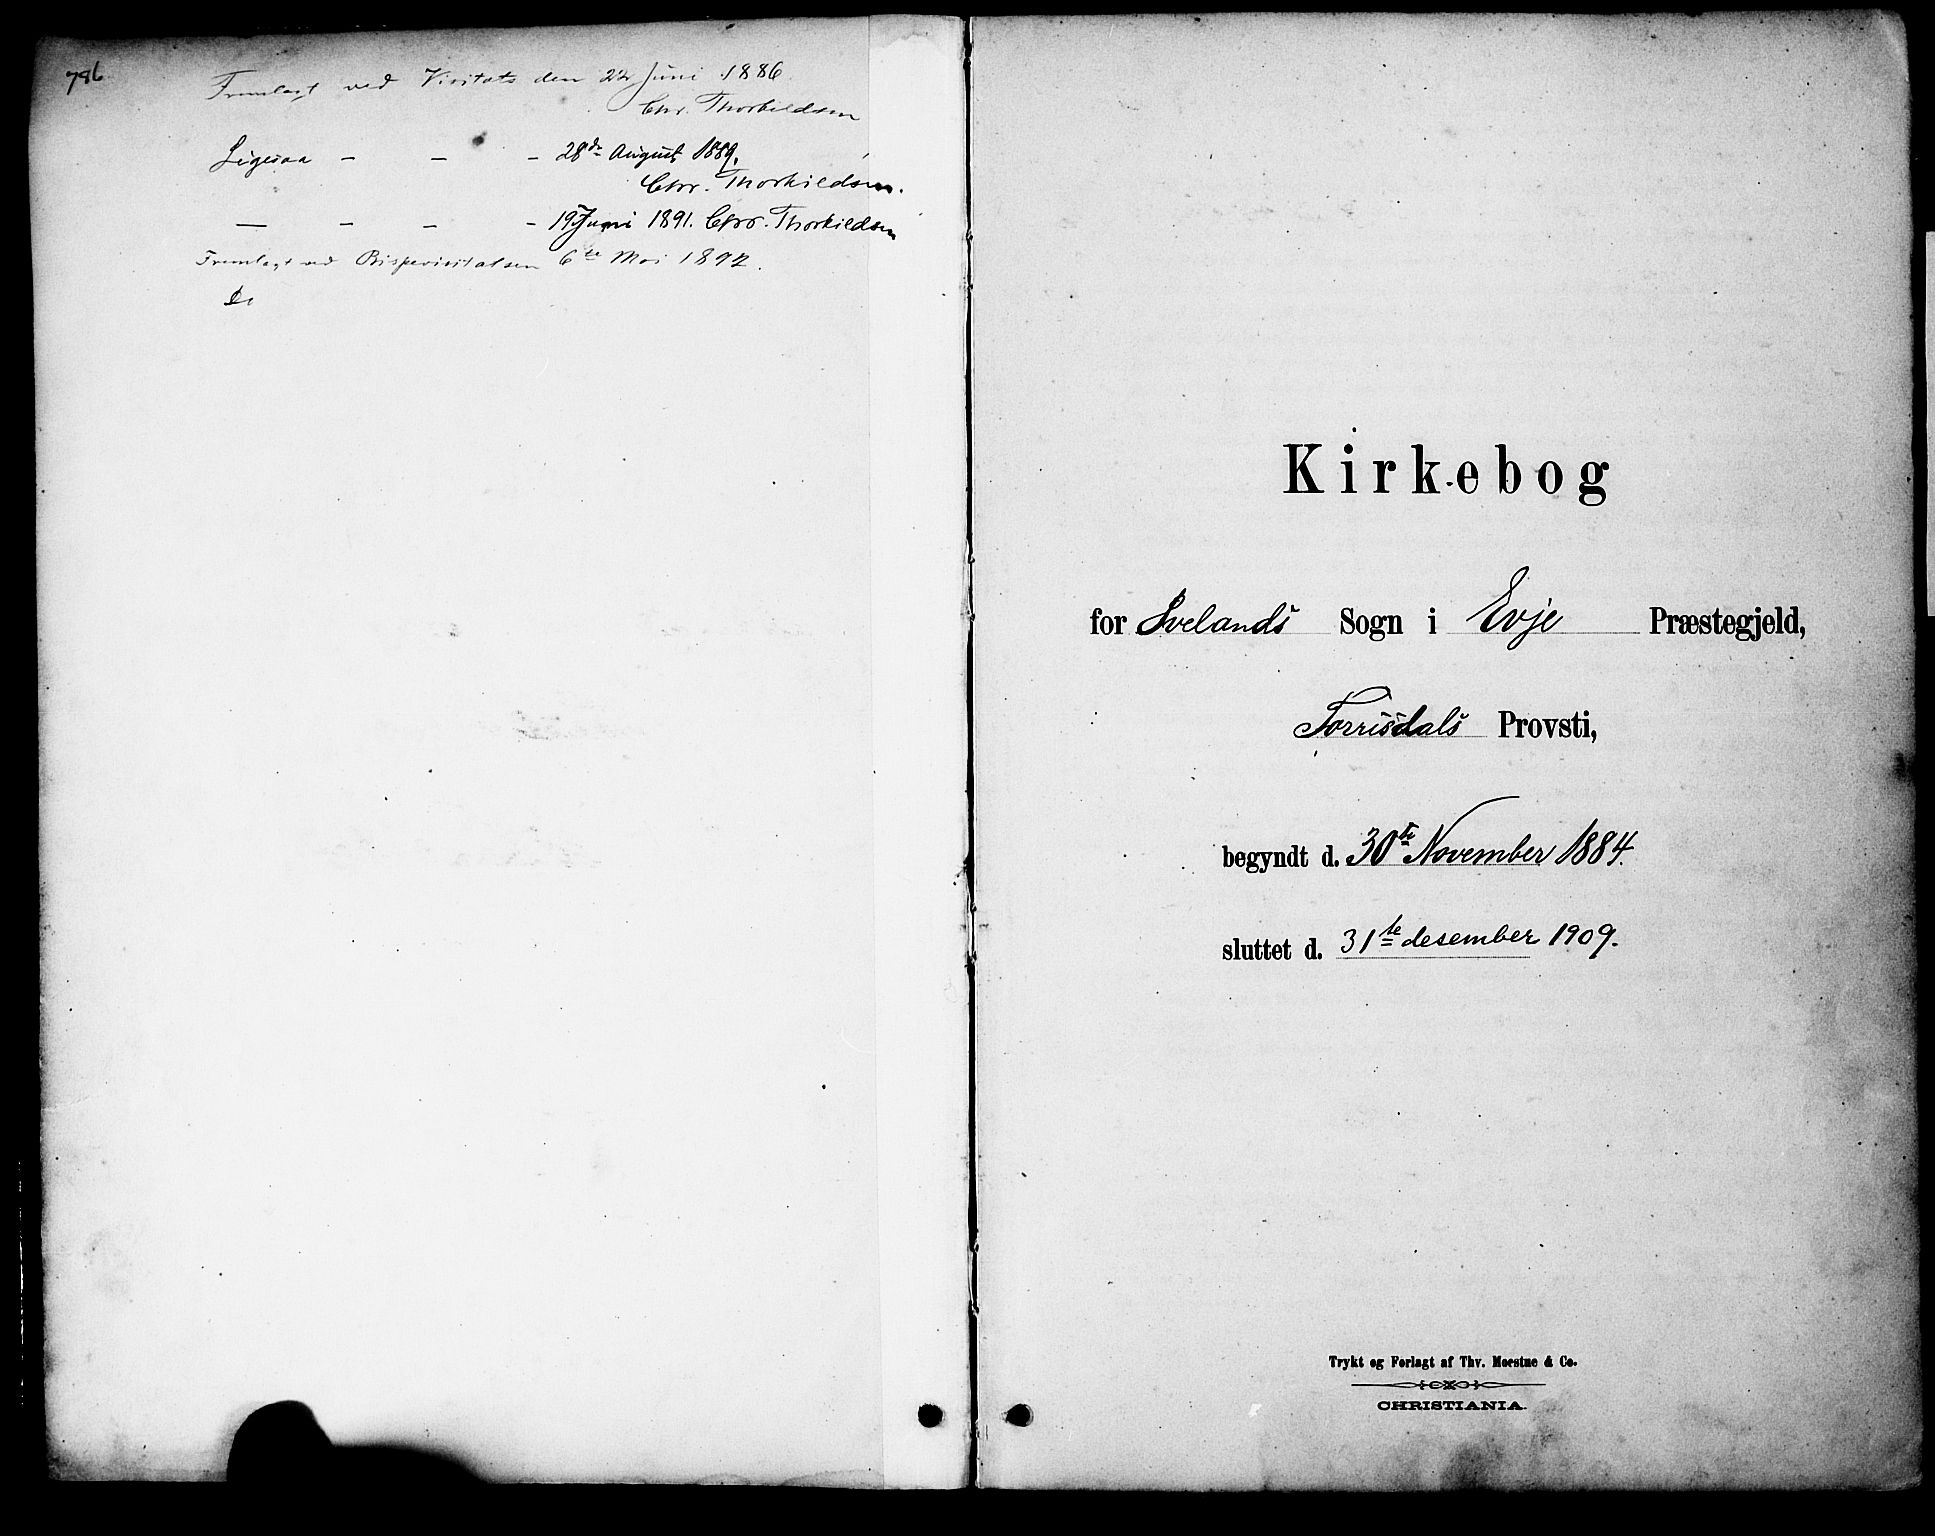 786
Fremlagt ved Visitats den 22 Juni 1886
Chr. Thorkildsen
Ligesaa – – – 28de August 1889.
Chr. Thorkildsen.
— – – – 19 Juni 1891. Chr. Thorkildsen
Fremlagt ved Bispevisitatsen 6te Mai 1892.
Kirkebog
for Ivelands Sogn i Evje Præstegjeld,
Torrisdals Provsti,
begyndt d. 30te November 1884.
sluttet d. 31te desember 1909.
Trykt og Forlagt af Thv. Moestue & Co.
CHRISTIANIA.